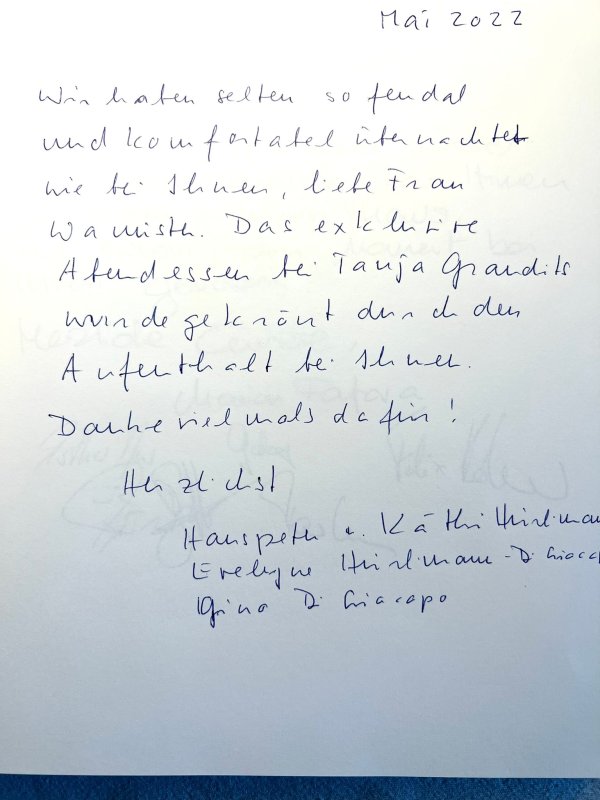 Mai 2022
Wir haben selten so feudal
und komfortabel übernachtet
wie bei Ihnen, liebe Frau
Das exklusive
Abendessen bei Tanja Grandits
wurde gekrönt durch den
Aufenthalt bei Ihnen.
Danke vielmals dafür!
Herzlichst
Hanspeter u. Käthi Hürlimann
Evelyne Hürlimann-Di Giacapo
Gino Di Giacapo